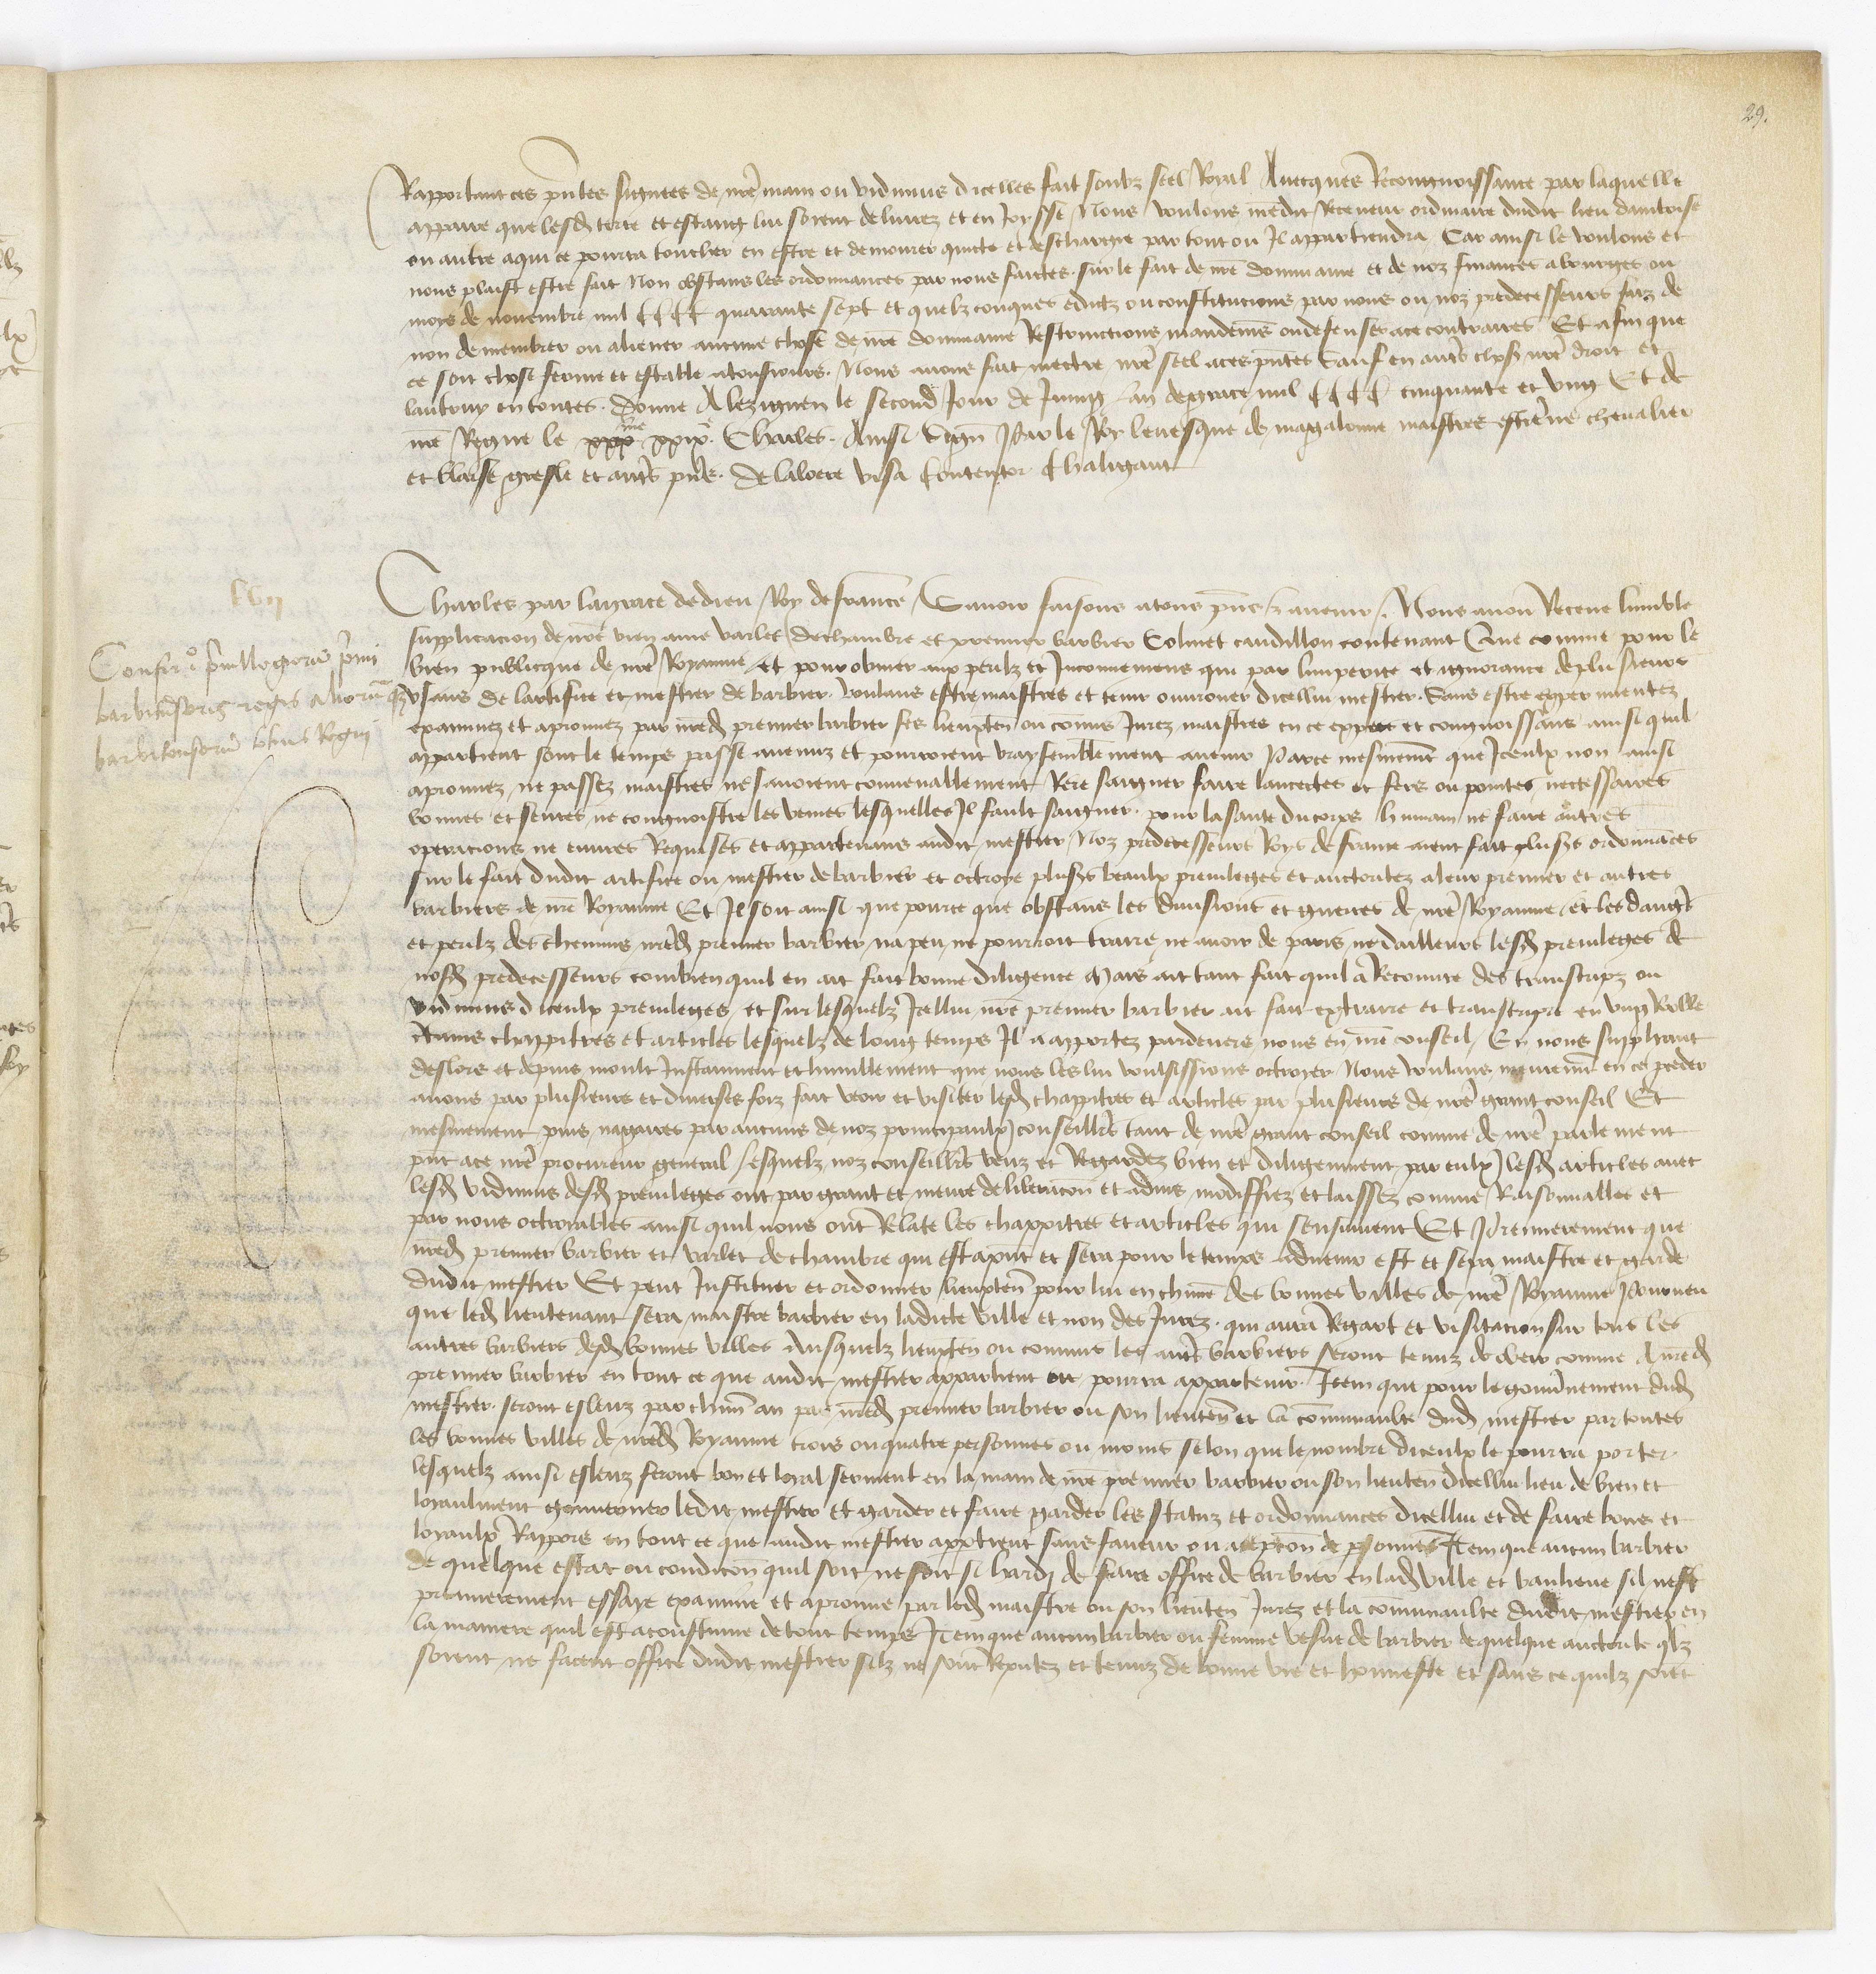 29.
Rapportant ces pñtes signees de nr̃e main ou vidimus dicelles fait soubz seel Royal Avecques Recongnoissance par laquelle
appaire que lesd terre et estang lui soient delivrez et en Joysse Nous voulons nr̃edit Receveur ordinaire dudit lieu damboise
ou autre aqui ce pourra toucher en estre et demourer quicte et deschargie par tout ou Il appartiendra Car ainsi le voulons et
nous plaist estre fait Non obstans les ordonnances par nous faictes sur le fait de nr̃e dommaine et de noz finances a bourges ou
mois de novembre mil CCCC quarante sept et quelzconques edictz ou constitucions par nous ou noz predecesseurs faiz de
non demembrer ou aliener aucune chose de nr̃e dommaine Restrinctions mandem̃s ou defenses ace contraires Et afin que
ce soit chose ferme et estable atousiours Nous avons fait mectre nr̃e seel aces pñtes Sauf en autr̃s choses nr̃e droit et
lautruy en toutes. Donne A lezignen le second Jour de Juing Lan de grace mil CCCC cinquante et ung Et de
nr̃e Regne le xxix me. Charles. Ainsi sign̄ Par le Roy levesque de magalonne maistres estie ne chevalier
et blaise gresle et autr̃s pñs. De laloere visa Contentor Chaligaut
LVII
Confir o privillegiorũ primi
barbitonsoris regis aliorũ qz
barbitonsorũ hui9 Regni
Charles par la grace de dieu Roy de france Savoir faisons atous pñs et avenir. Nous avon Receue lumble
supplicacion de nr̃e bien ame varlet de chambre et premier barbier Colinet candillon contenant Que comme pour le
bien publicque de nr̃e Royaume et pour obvier aux perilz et Inconveniens qui par limperite et ignorance de plusieurs
usans de lartifice et mestier de barbier. voulans estre maistres et tenir ouvrouer dicellui mestier. Sans estre experimentez
examinez et aprouvez par nr̃ed premier barbier ses lieuxten̄ ou com̃is Jurez maistres en ce exper et congnoissãns ainsi quil
appartient sont le temps passe avenuz et pourroient vraysemblement avenir Parce mesmem̃t que Iceulx non ainsi
aprouvez ne passez maistres ne savoient convenablement Rere saigner faire lancectes et fers ou pointes necessaires
bonnes et seures ne congnoistre les veines lesquelles Il fault saigner. pour la sante du corps humain ne faire autres
operacions ne euvres Requises et appartenans audit mestier Noz predecesseurs Roys de france aient fait plusrs ordonnances
sur le fait dudit artifice ou mestier de barbier et octroye plusrs beaulx previleges et auctoritez aleur premier et autres
barbiers de nr̃e Royaume Et Il soit ainsi que pource que obstans les divisions et guerres de nr̃e Royaume et les dang̃s
et perilz des chemins nr̃ed premier barbier na peu ne pourroit traire ne avoir de paris ne dailleurs lesd previleges de
nosd predecesseurs combien quil en ait fait bonne diligence Mais ait tant fait quil a Recouvre des transcripz ou
vidimus diceulx previleges et sur lesquelz Icellui nr̃e premier barbier ait fait extraire et transcripre en ung Rolle
certains chappitres et articles lesquelz de long temps Il a apportez pardevers nous en nr̃e conseil En nous suppliant
deslors et depuis moult Instamment et humblement que nous les lui voulsissions octroyer Nous voulans meurem̃t en ce p̃ceder
avons par plusieurs et diverses foiz fait veoir et visiter lesd chappitres et articles par plusieurs de nr̃e grant conseil Et
mesmement puis nagaires par aucuns de noz principaulx conseillrs tant de nr̃e grant conseil comme de nr̃e parlement
pñt ace nr̃e procureur general Lesquelz noz conseillrs veuz et Regardez bien et diligemment par eulx lesd articles avec
lesd vidimus desd previleges ont par grant et meure deliberacion et advis modiffiez et laissez comme Raisonnables et
par nous octroiables ainsi quil nous ont Relate les chappitres et articles qui sensuivent Et Premierement que
nr̃ed premier barbier et varlet de chambre qui est apñt et sera pour le temps advenir est et sera maistre et garde
dudit mestier Et peut Instituer et ordonner lieuxten̄ pour lui en chũne des bonnes villes de nr̃e Royaume Pourveu
que led lieutenant sera maistre barbier en ladicte ville et non des Jurez. qui aura Regart et visitacion sur tous les
autres barbiers desd bonnes villes Ausquelz lieuxten̄ ou commis les autr̃s barbiers seront tenuz dobeir comme A nr̃ed
premier barbier en tout ce que audit mestier appartient ou pourra appartenir. Item que pour le gouv̄nement dud
mestier. seront esleuz par chũn an par nr̃ed premier barbier ou son lieuten̄ et la com̃unaulte dud mestier par toutes
les bonnes villes de nr̃ed Royaume trois ou quatre personnes ou moins selon que le nombre diceulx le pourra porter.
lesquelz ainsi esleuz feront bon et loyal serment en la main de nr̃e premier barbier ou son lieuten̄ dicellui lieu de bien et
loyaulment gouverner ledit mestier et garder et faire garder les statuz et ordonnances dicellui et de faire bons et
loyaulx Rappors en tout ce que audit mestier apptient sans faveur ou acepcõn de psonnes Item que aucun barbier
de quelque estat ou condicõn quil soit ne soit si hardj de faire office de barbier en lad ville et banlieue sil nest
premierement essaye examine et aprouve par led maistre ou son lieuten̄ Jurez et la com̃unaulte dudit mestier en
la maniere quil est acoustume de tout temps Item que aucun barbier ou femme vefue de barbier de quelque auctorite qlz
soient ne facent office dudit mestier silz ne sont Reputez et tenuz de bonne vie et honneste et sans ce quilz soiet